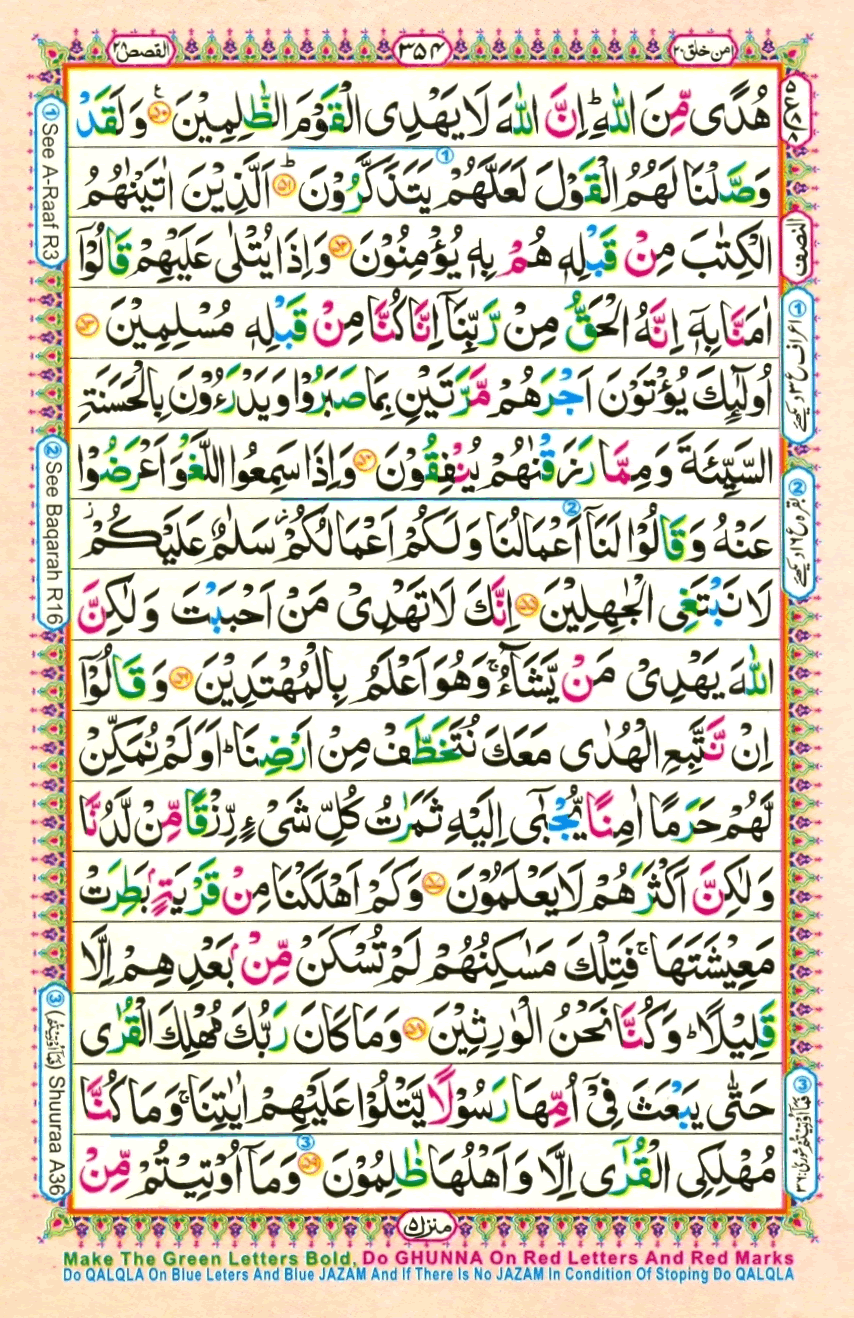 القصص ٢٨
٣٥٤
امن خلق ٢٠
هُدًى مِّنَ اللّٰهِ ؕ اِنَّ اللّٰهَ لَا يَهْدِى الْقَوْمَ الظّٰلِمِيْنَ ﴿۵۰﴾ وَلَقَدْ
وَصَّلْنَا لَهُمُ الْقَوْلَ لَعَلَّهُمْ يَتَذَكَّرُوْنَ ﴿۵۱﴾ ؕ اَلَّذِيْنَ اٰتَيْنٰهُمُ
الْكِتٰبَ مِنْ قَبْلِهٖ هُمْ بِهٖ يُؤْمِنُوْنَ ﴿۵۲﴾ وَاِذَا يُتْلٰى عَلَيْهِمْ قَالُوْۤا
اٰمَنَّا بِهٖۤ اِنَّهُ الْحَقُّ مِنْ رَّبِّنَاۤ اِنَّا كُنَّا مِنْ قَبْلِهٖ مُسْلِمِيْنَ ﴿۵۳﴾
اُولٰٓئِكَ يُؤْتَوْنَ اَجْرَهُمْ مَّرَّتَيْنِ بِمَا صَبَرُوْا وَيَدْرَءُوْنَ بِالْحَسَنَةِ
السَّيِّئَةَ وَمِمَّا رَزَقْنٰهُمْ يُنْفِقُوْنَ ﴿۵۴﴾ وَاِذَا سَمِعُوا اللَّغْوَ اَعْرَضُوْا
عَنْهُ وَقَالُوْا لَنَاۤ اَعْمَالُنَا وَلَكُمْ اَعْمَالُكُمْ ؗ سَلٰمٌ عَلَيْكُمْ ؗ
لَا نَبْتَغِى الْجٰهِلِيْنَ ﴿۵۵﴾ اِنَّكَ لَا تَهْدِىْ مَنْ اَحْبَبْتَ وَلٰكِنَّ
اللّٰهَ يَهْدِىْ مَنْ يَّشَآءُ ۚ وَهُوَ اَعْلَمُ بِالْمُهْتَدِيْنَ ﴿۵۶﴾ وَقَالُوْۤا
اِنْ نَّتَّبِعِ الْهُدٰى مَعَكَ نُتَخَطَّفْ مِنْ اَرْضِنَا ؕ اَوَلَمْ نُمَكِّنْ
لَّهُمْ حَرَمًا اٰمِنًا يُّجْبٰٓى اِلَيْهِ ثَمَرٰتُ كُلِّ شَىْءٍ رِّزْقًا مِّنْ لَّدُنَّا
وَلٰكِنَّ اَكْثَرَهُمْ لَا يَعْلَمُوْنَ ﴿۵۷﴾ وَكَمْ اَهْلَكْنَا مِنْ قَرْيَةٍۭ بَطِرَتْ
مَعِيْشَتَهَا ۚ فَتِلْكَ مَسٰكِنُهُمْ لَمْ تُسْكَنْ مِّنْۢ بَعْدِهِمْ اِلَّا
قَلِيْلًا ؕ وَكُنَّا نَحْنُ الْوٰرِثِيْنَ ﴿۵۸﴾ وَمَا كَانَ رَبُّكَ مُهْلِكَ الْقُرٰى
حَتّٰى يَبْعَثَ فِىْۤ اُمِّهَا رَسُوْلًا يَّتْلُوْا عَلَيْهِمْ اٰيٰتِنَا ۚ وَمَا كُنَّا
مُهْلِكِى الْقُرٰٓى اِلَّا وَاَهْلُهَا ظٰلِمُوْنَ ﴿۵۹﴾ وَمَاۤ اُوْتِيْتُمْ مِّنْ
① See A-Raaf R3
② See Baqarah R16
③ Shuuraa A36
النصف
منزل ۵
Make The Green Letters Bold, Do GHUNNA On Red Letters And Red Marks
Do QALQLA On Blue Leters And Blue JAZAM And If There Is No JAZAM In Condition Of Stoping Do QALQLA